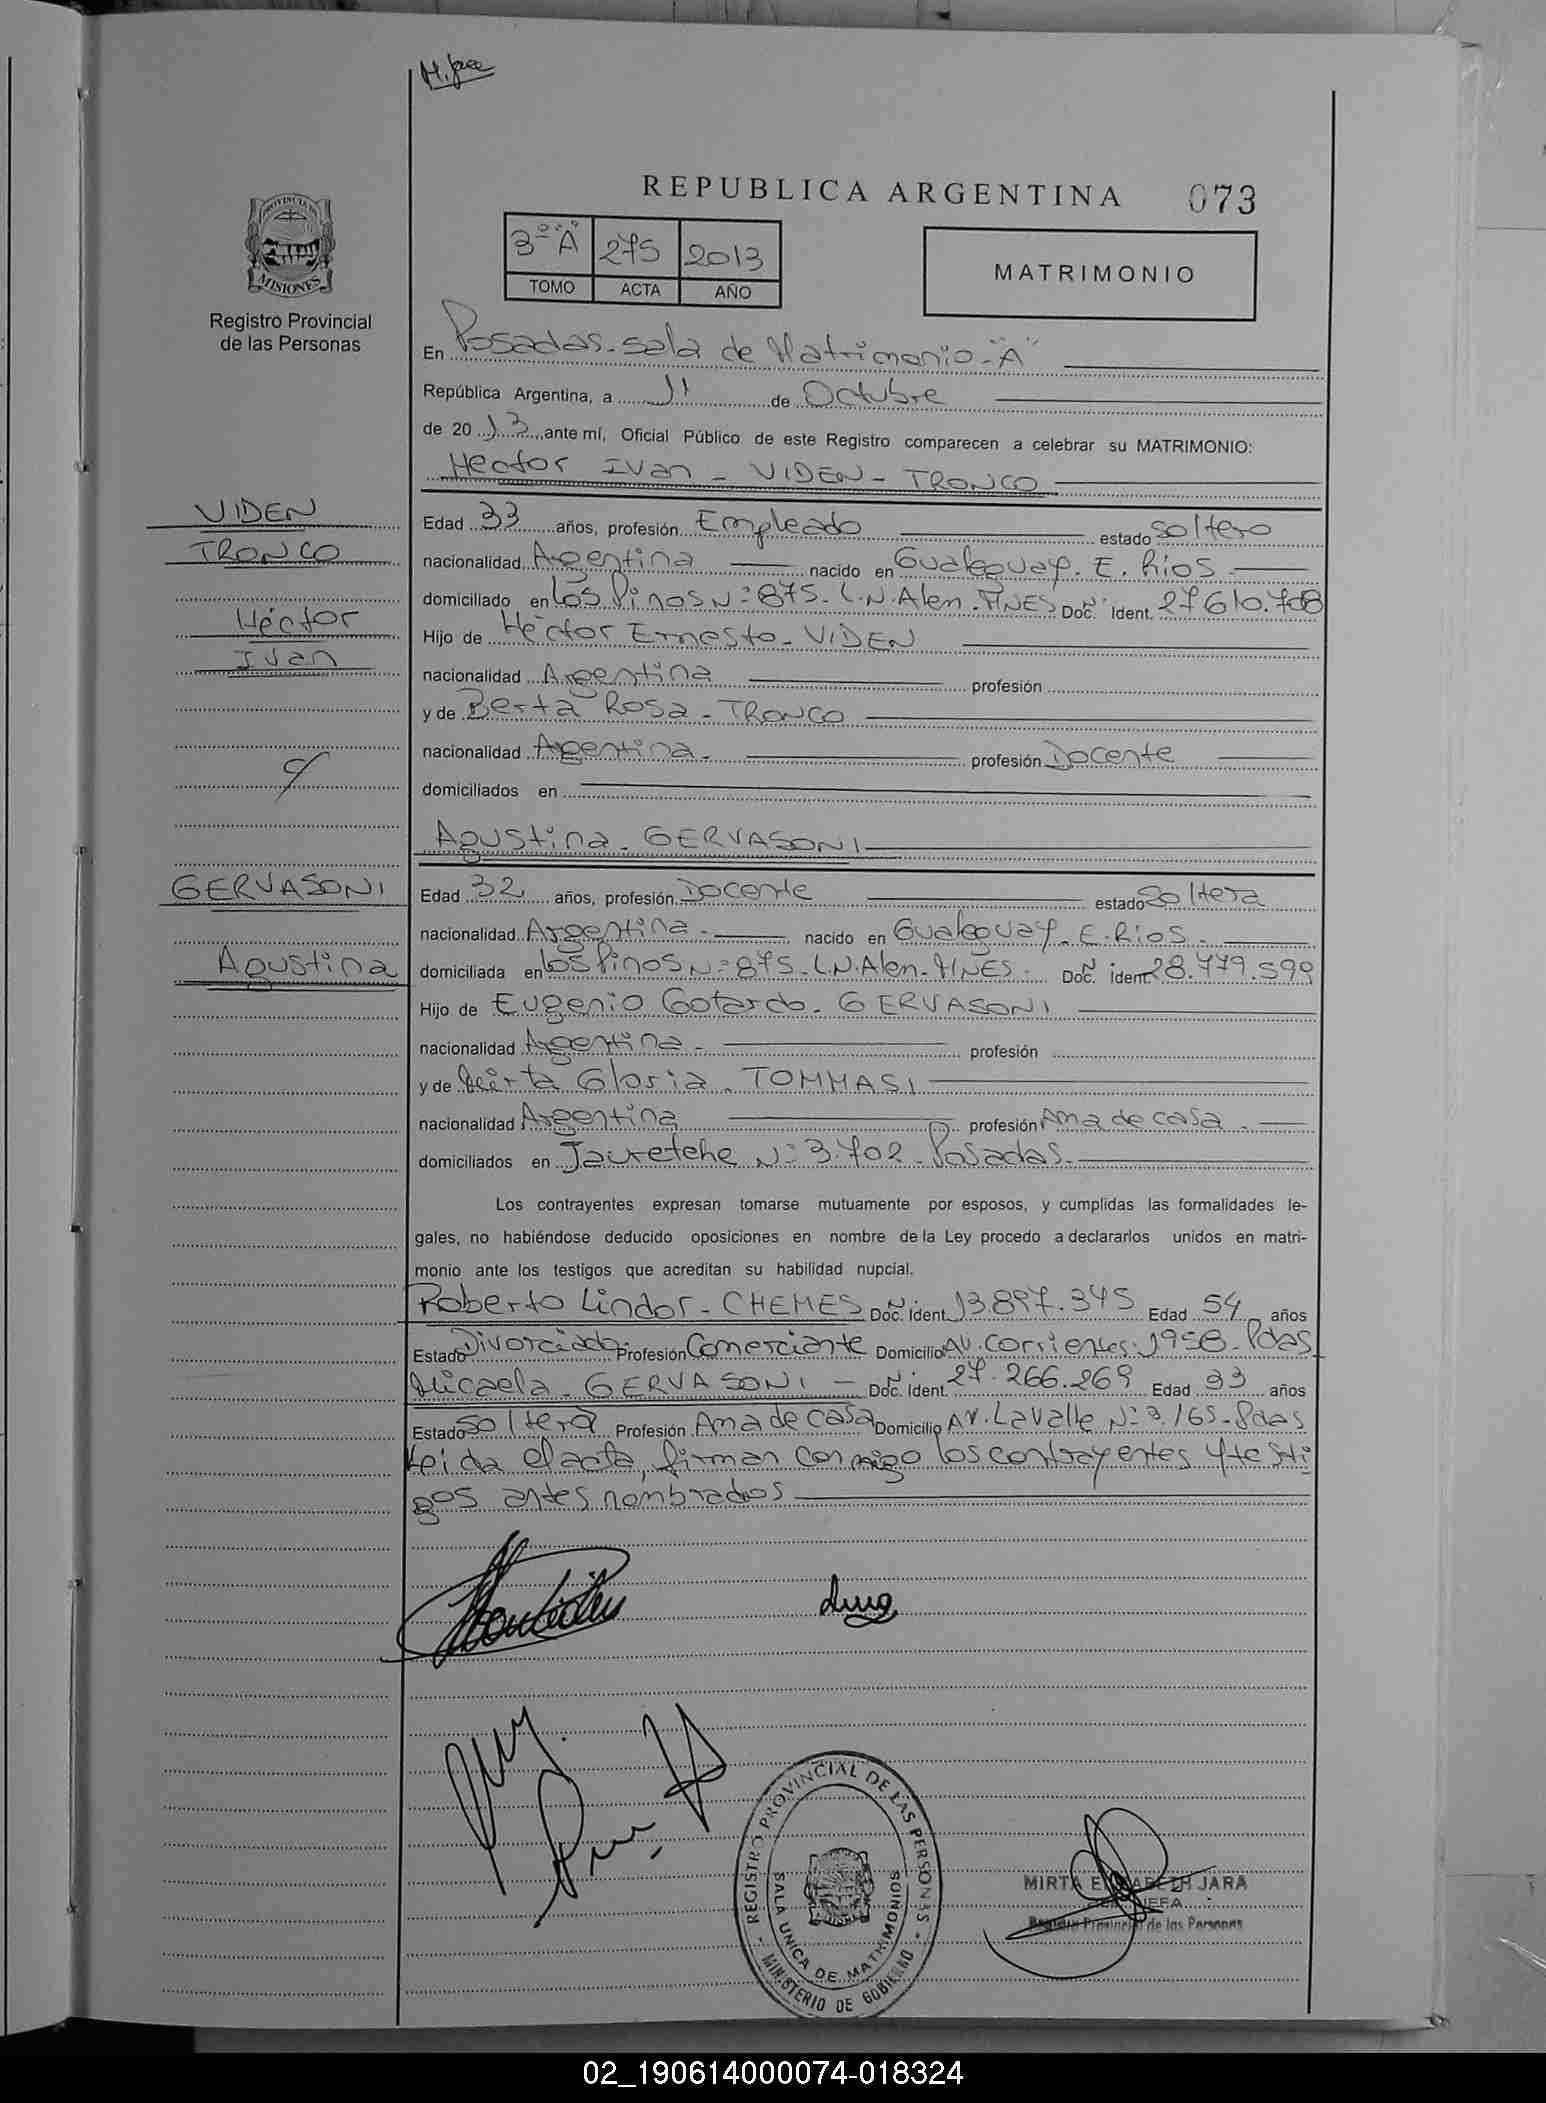 REPUBLICA ARGENTINA 073
PROVINCIA DE
MISIONES
Registro Provincial
de las Personas
3º "A" 275 2013
TOMO ACTA AÑO
MATRIMONIO
En Posadas - Sala de Matrimonio - "A"
República Argentina, a 11 de Octubre
de 2013 ante mí, Oficial Público de este Registro comparecen a celebrar su MATRIMONIO:
Hector Ivan - VIDEN - TRONCO
VIDEN
TRONCO
Héctor
Ivan
c/
GERVASONI
Agustina
Edad 33 años, profesión Empleado estado Soltero
nacionalidad Argentina nacido en Gualeguay. E. Ríos -
domiciliado en Los Pinos Nº 875 - L.N. Alem - MNES Doc. Nº Ident. 27.610.708
Hijo de Héctor Ernesto - VIDEN
nacionalidad Argentina profesión
y de Berta Rosa - TRONCO
nacionalidad Argentina - profesión Docente
domiciliados en
Agustina - GERVASONI
Edad 32 años, profesión Docente estado Soltera
nacionalidad Argentina - nacido en Gualeguay - E. Rios -
domiciliada en Los Pinos Nº 875 - L.N. Alem - MNES - Doc. Nº Ident. 28.779.599
Hijo de Eugenio Gotardo - GERVASONI
nacionalidad Argentina - profesión
y de Mirta Gloria - TOMMASI
nacionalidad Argentina profesión Ama de casa -
domiciliados en Jauretche Nº 3.702 - Posadas -
Los contrayentes expresan tomarse mutuamente por esposos, y cumplidas las formalidades le-
gales, no habiéndose deducido oposiciones en nombre de la Ley procedo a declararlos unidos en matri-
monio ante los testigos que acreditan su habilidad nupcial.
Roberto Lindor - CHEMES Doc. Nº Ident. 13.897.345 Edad 54 años
Estado Divorciado Profesión Comerciante Domicilio Av. Corrientes 1958 - Pdas
Micaela - GERVASONI - Doc. Nº Ident. 27.266.269 Edad 33 años
Estado Soltera Profesión Ama de casa Domicilio Av. Lavalle Nº 3.165 - Pdas
Leida el acta, firman conmigo los contrayentes y testi
gos antes nombrados
REGISTRO PROVINCIAL DE LAS PERSONAS - MINISTERIO DE GOBIERNO
SALA UNICA DE MATRIMONIOS
MIRTA ELIZABETH JARA
JEFA
Registro Provincial de las Personas
02_190614000074-018324